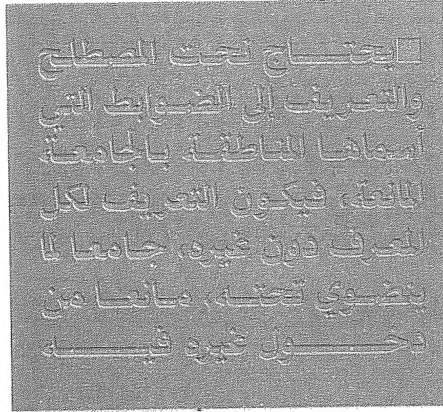 يحتاج نحت المصطلح
والتعريف إلى الضوابط التي
أسماها المناطقة بالجامعة
المانعة، فيكون التعريف لكل
المعرف دون غيره، جامعا لما
ينضوي تحته، مانعا من
دخول غيره فيه